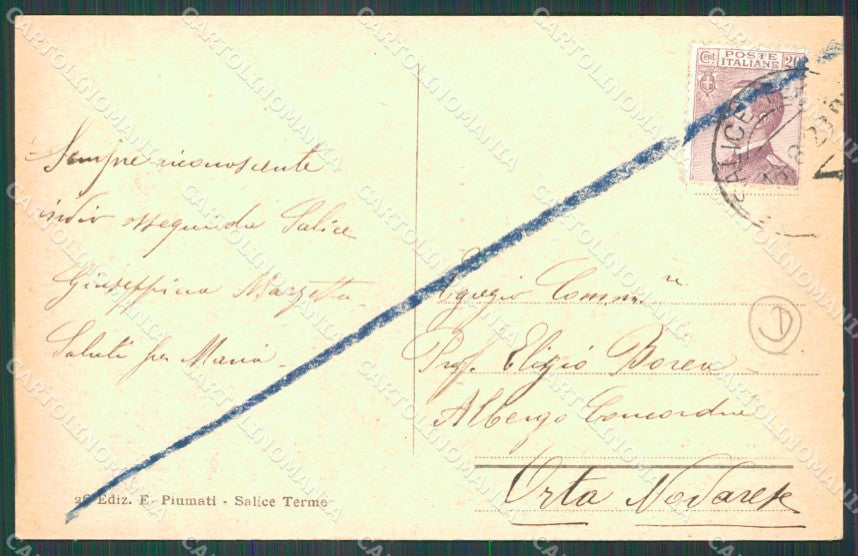 Sempre riconoscente
invio ossequi da Salice
Giuseppina Marzetta
Saluti per Maria
26 Ediz. E. Piumati - Salice Terme
Cent. POSTE ITALIANE 20
SALICE
Egregio Comm.re
Prof. Eligio
Albergo Concordia
Orta Novarese
D
CARTOLINOMANIA